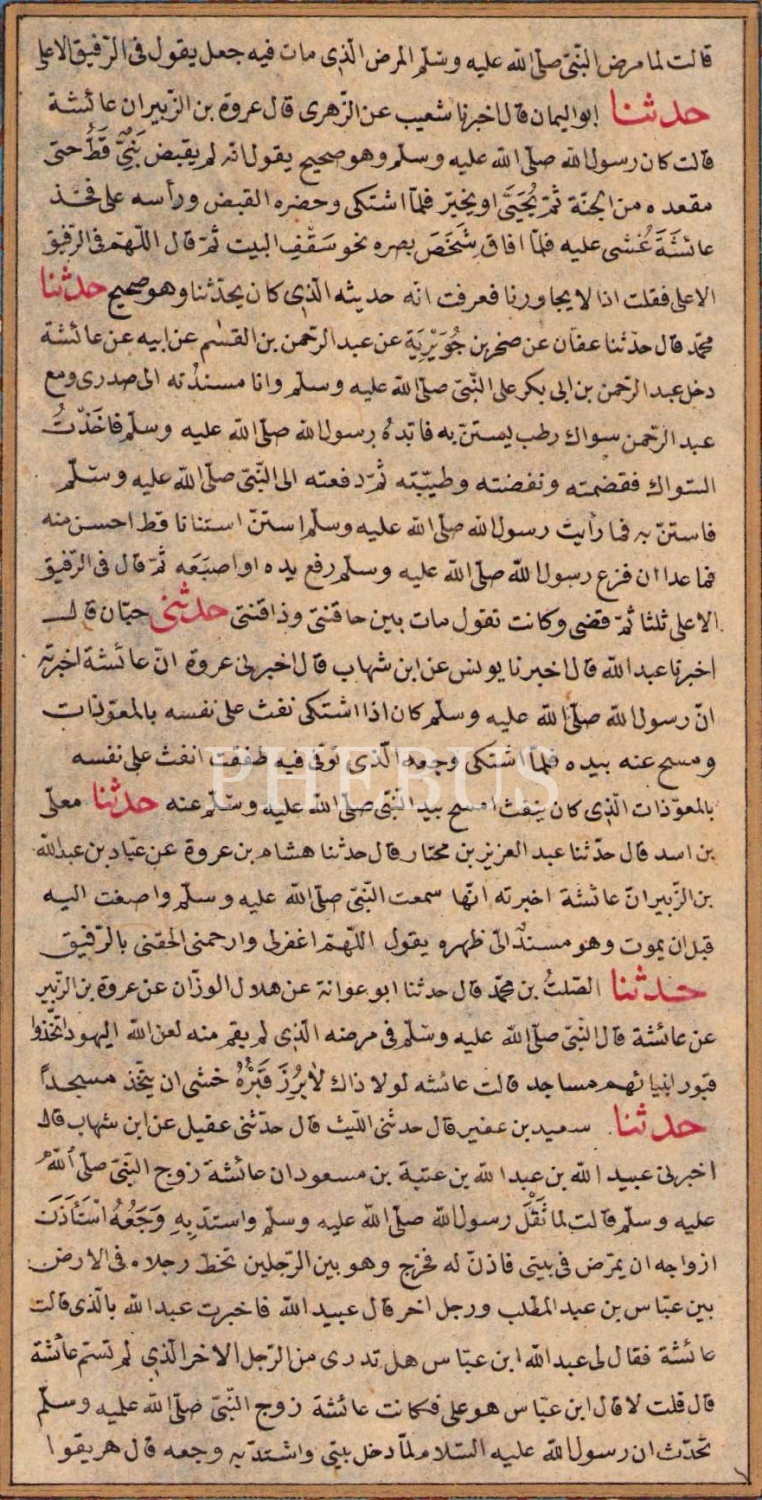 قالت لما مرض النبّىّ صلّى الله عليه وسلّم المرض الّذى مات فيه جعل يقول فى الرّفيق الاعلى
حدثنا ابو اليمان قال اخبرنا شعيب عن الزّهرى قال عروة بن الزّبير ان عائشة
قالت كان رسول الله صلّى الله عليه وسلّم وهو صحيح يقول انّه لم يقبض نَبِىٌّ قَطُّ حتى
مقعده من الجنّة ثمّ يُحَيَّى او يخيّر فلمّا اشتكى وحضره القبض ورأسه على فخذ
عائشَةَ غُشى عليه فلمّا افاق شَخَصَ بصره نحو سَقْفِ البيت ثمّ قال اللّهمّ فى الرّفيق
الاعلى فقلت اذا لا يجاورنا فعرفت انّه حديثه الّذى كان يحدّثنا وهو صحيح حدثنا
محمّد قال حدّثنا عفّان عن صخر بن جُوَيْرِيَة عن عبد الرّحمن بن القسٰم عن ابيه عن عائشة
دخل عبد الرّحمن بن ابى بكر على النّبّى صلّى الله عليه وسلّم وانا مسندُته الى صدرى ومع
عبد الرّحمن سواك رطب يستنّ به فابّدهُ رسول الله صلّى الله عليه وسلّم فاخَذْتُ
السّواك فقضمته ونفضته وطيّبته ثمّ دفعته الى النّبّى صلّى الله عليه وسلّم
فاستنّ به فما رأيت رسول الله صلّى الله عليه وسلّم استنّ استنانا قط احسن منه
فما عدا ان فرع رسول اللّه صلّى الله عليه وسلّم رفع يده او اصبَعَه ثمّ قال فى الرّفيق
الاعلى ثلثا ثمّ قضى وكانت تقول مات بين حاقنتى وذاقنتى حدثنى حبّان قال
اخبرنا عبد اللّه قال اخبرنا يونس عن ابن شهاب قال اخبرنى عروة انّ عائشة اخبرته
انّ رسول الله صلّى الله عليه وسلّم كان اذا اشتكى نفث على نفسه بالمعوّذات
ومسح عنه بيده فلمّا اشتكى وجعه الّذى توفّى فيه طفقت انفث على نفسه
بالمعوّذات الّذى كان ينفث امسح بيد النّبّى صلّى الله عليه وسلّم عنه حدثنا معلّى
بن اسد قال حدّثنا عبد العزيز بن مختار قال حدثنا هشام بن عروة عن عبّاد بن عبد اللّه
بن الزّبير انّ عائشة اخبرته انّها سمعت النّبّى صلّى الله عليه وسلّم واصغت اليه
قبل ان يموت وهو مسندٌ الىّ ظهره يقول اللّهمّ اغفرلى وارحمنى الحقنى بالرّفيق
حدثنا الصّلتُ بن محمّد قال حدثنا ابو عوانة عن هلال الوزّان عن عروة بن الزّبير
عن عائشة قال النّبّى صلّى الله عليه وسّلم فى مرضه الّذى لم يقم منه لعن اللّه اليهود اتّخذوا
قبور انبيائهم مساجد قالت عائشه لولا ذاك لاُبرِزَ قَبْرُهُ خشى ان يتّخذ مسجدًا
حدثنا سعيد بن عفير قال حدثنى اللّيث قال حدّثنى عقيل عن ابن شهاب قال
اخبرنى عبيد اللّه بن عبد اللّه بن عتبة بن مسعود ان عائشة زوج النّبّى صلّى اللّٰهُ
عليه وسلّم قالت لما ثَقُلَ رسول اللّه صلّى الله عليه وسلّم واستدّ بِهِ وَجَعُهُ اسْتَأذَنَ
ازواجه ان يمرّض فى بيتى فاذنّ له فخرج وهو بين الرّجلين تخطّ رجلاه فى الارض
بين عبّاس بن عبد المطّلب ورجل اخر قال عبيد اللّه فاخبرت عبد اللّه بالّذى قالت
عائشة فقال لى عبد اللّه ابن عبّاس هل تدرى من الرّجل الاخر الّذى لم تسمّ عائشة
قال قلت لا قال ابن عبّاس هو على فكانت عائشة زوج النّبّى صلّى اللّه عليه وسلّم
تحدّث ان رسول اللّه عليه السّلام لمّا دخل بيتى واشتدّ به وجعه قال هريقوا
PHEBUS